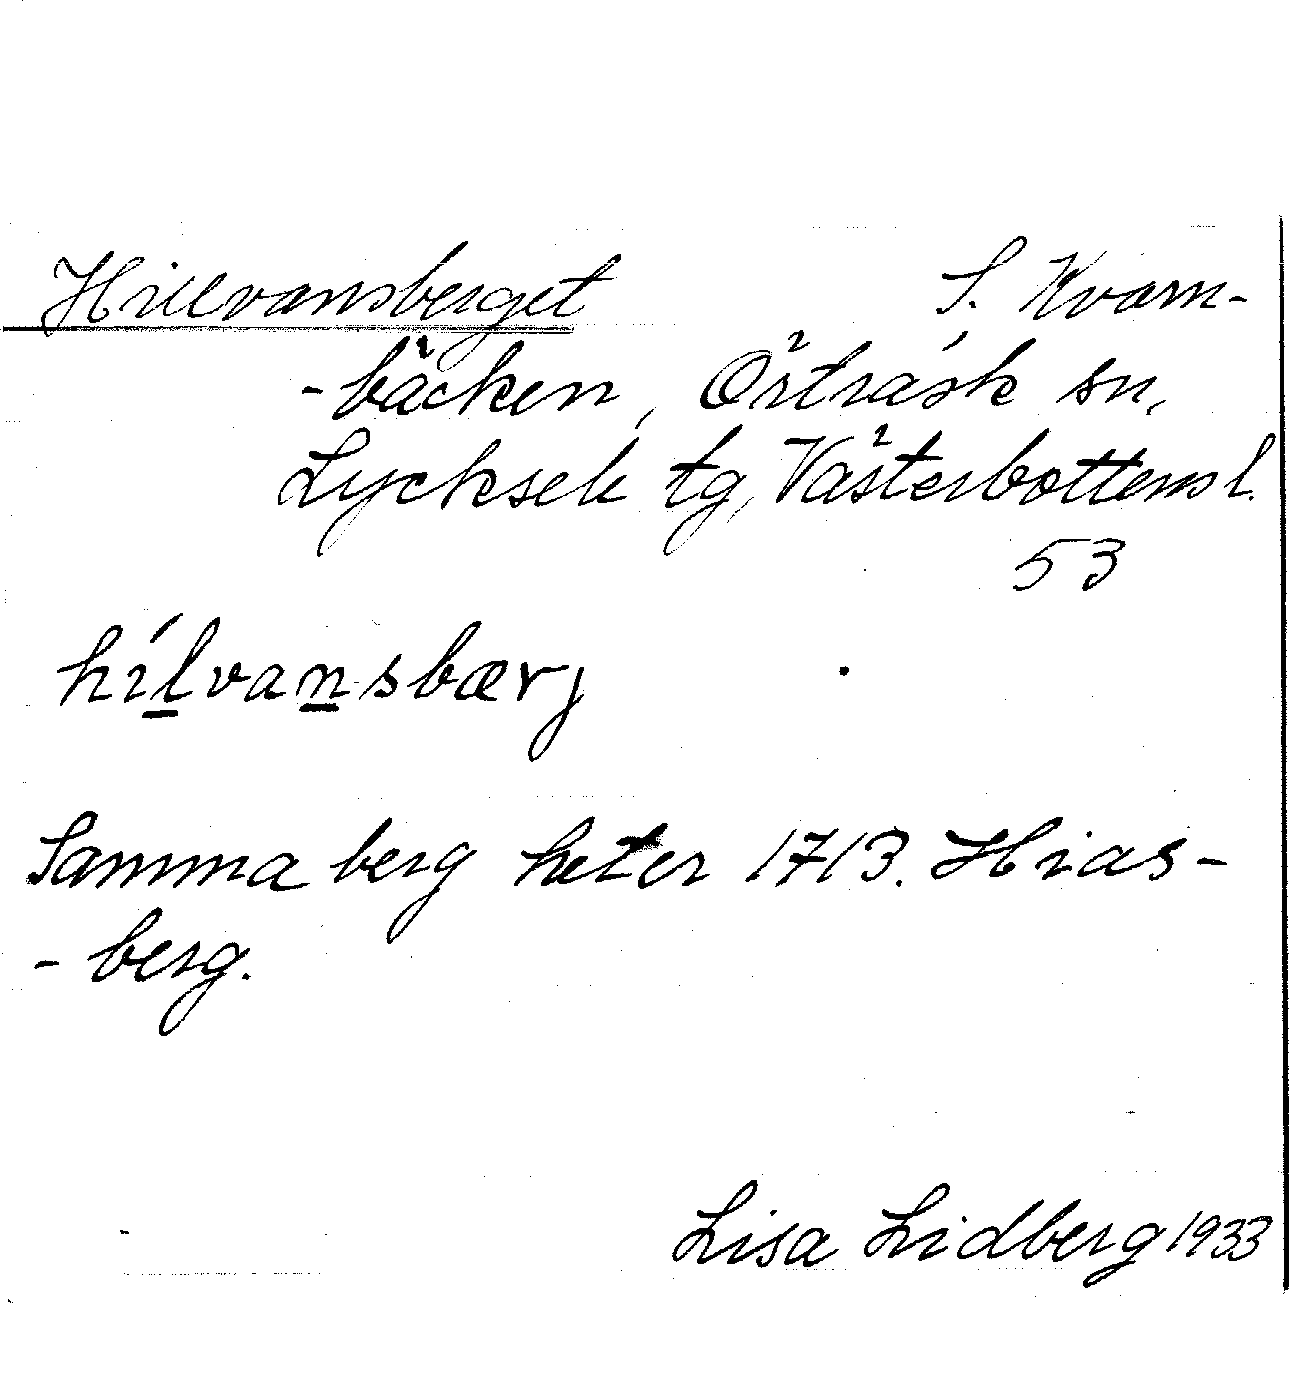 Hillvansberget S. Kvarn-
-bäcken, Örträsk sn,
Lycksele tg, Västerbottens l.
53
hílvansbærj
Samma berg heter 1713. Hias-
- berg.
Lisa Lidberg 1933